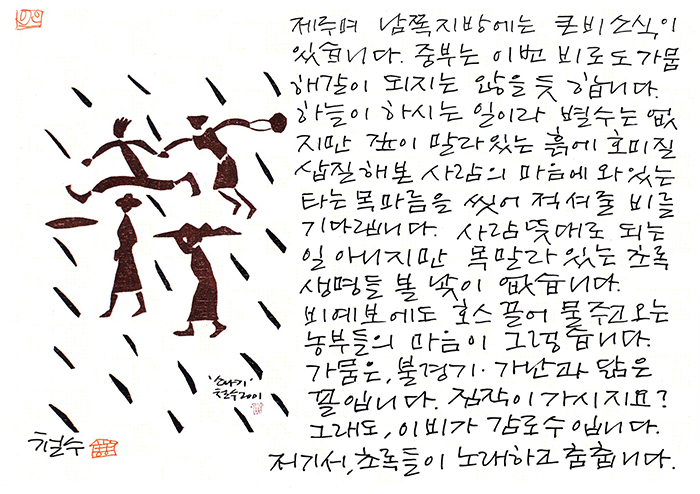 제주며 남쪽지방에는 큰비소식이
있습니다. 중부는 이번 비로도가뭄
해갈이 되지는 않을듯 합니다.
하늘이 하시는 일이라 별수는 없
지만 깊이 말라있는 흙에 호미질
삽질해본 사람의 마음에 와있는
타는목마름을 씻어 적셔줄 비를
기다립니다. 사람뜻대로 되는
일 아니지만 목말라 있는 초록
생명들 볼 낯이 없습니다.
비예보에도 호스 끌어 물주고오는
농부들의 마음이 그렇습니다.
가뭄은, 불경기·가난과 닮은
꼴입니다. 짐작이 가시지요?
그래도, 이비가 감로수입니다.
저기서, 초록들이 노래하고 춤춥니다.
'소나기'
철수2001
철수